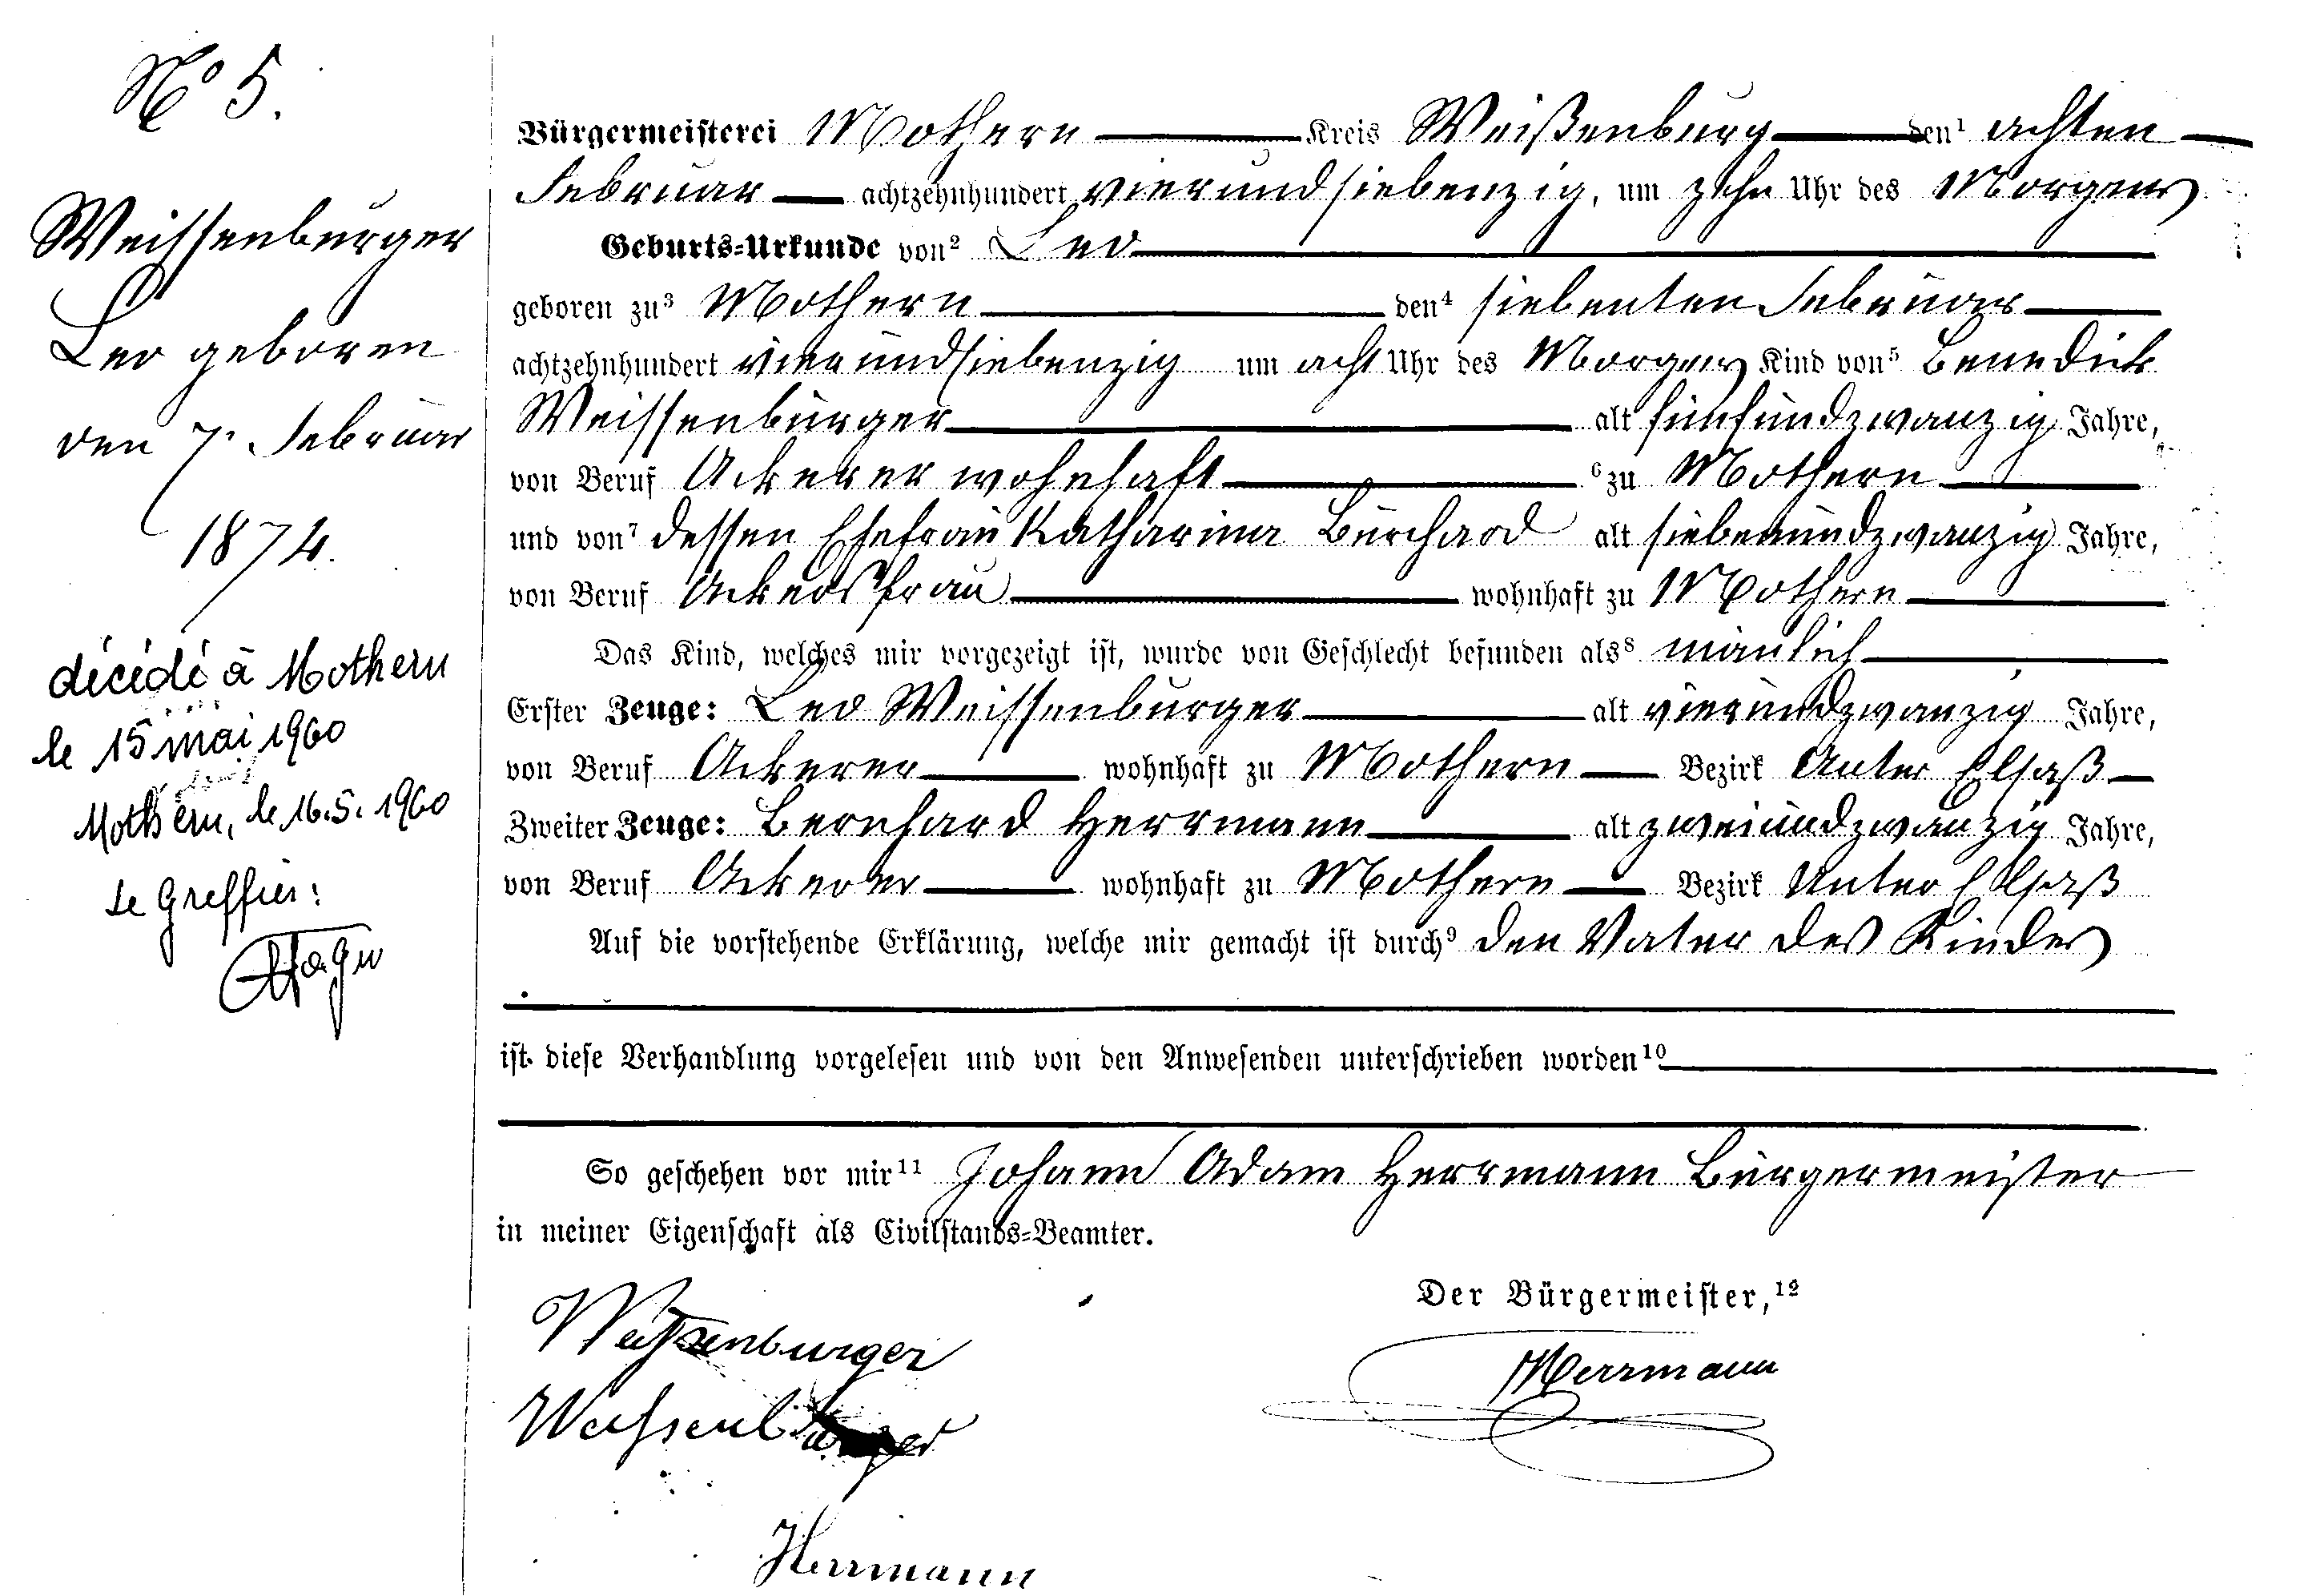 No 5.
Weissenburger
Leo geboren
den 7. Februar
1874.
décédé à Mothern
le 15 mai 1960
Mothern, le 16.5.1960
Le Greffier:
Bürgermeisterei Mothern Kreis Weißenburg den¹ achten
Februar achtzehnhundert vierundsiebenzig, um zehn Uhr des Morgens
Geburts=Urkunde von² Leo
geboren zu³ Mothern den⁴ siebenten Februar
achtzehnhundert vierundsiebenzig um acht Uhr des Morgens Kind von⁵ Benedick
Weissenburger alt fünfundzwanzig Jahre,
von Beruf Ackerer wohnhaft ⁶ zu Mothern
und von⁷ dessen Ehefrau Katharina Burchard alt siebenundzwanzig Jahre,
von Beruf Ackersfrau wohnhaft zu Mothern
Das Kind, welches mir vorgezeigt ist, wurde von Geschlecht befunden als⁸ mänlich
Erster Zeuge: Leo Weissenburger alt vierundzwanzig Jahre,
von Beruf Ackerer wohnhaft zu Mothern Bezirk Unter Elsaß
Zweiter Zeuge: Bernhard Herrmann alt zweiundzwanzig Jahre,
von Beruf Ackerer wohnhaft zu Mothern Bezirk Unter Elsaß
Auf die vorstehende Erklärung, welche mir gemacht ist durch⁹ den Vater des Kindes
ist diese Verhandlung vorgelesen und von den Anwesenden unterschrieben worden¹⁰
So geschehen vor mir¹¹ Johann Adam Herrmann Bürgermeister
in meiner Eigenschaft als Civilstands=Beamter.
Der Bürgermeister,¹²
Weissenburger
Weissenburger
Herrmann
Herrmann